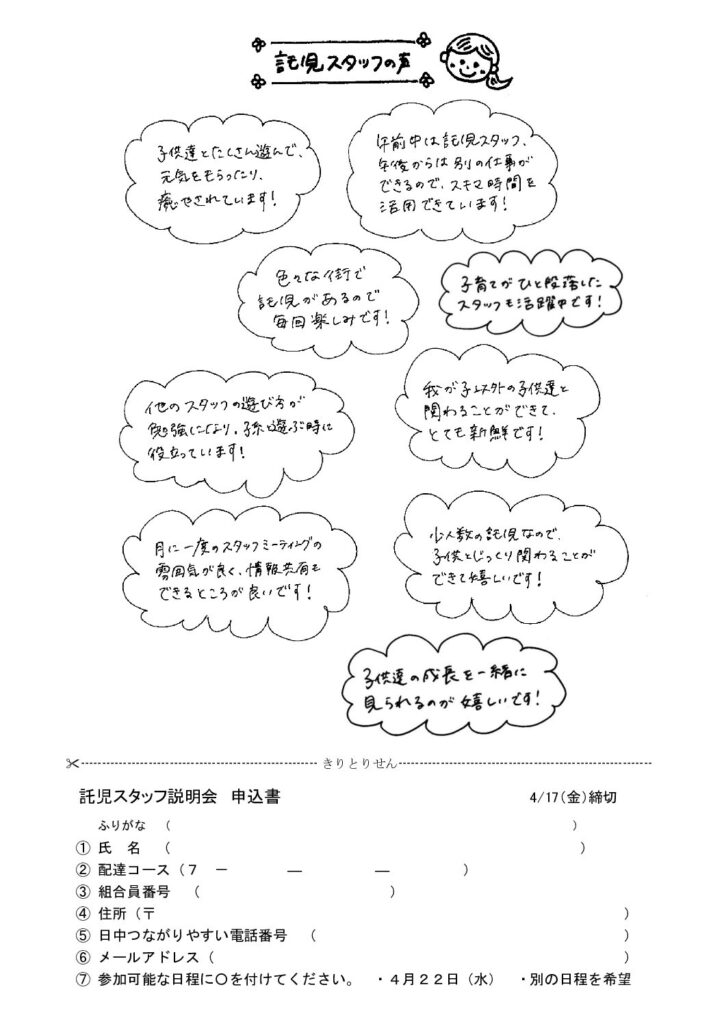 託児スタッフの声
子供達とたくさん遊んで、
元気をもらったり、
癒やされています!
午前中は託児スタッフ、
午後からは別の仕事が
できるので、スキマ時間を
活用できています!
色々な街で
託児があるので
毎回楽しみです!
子育てがひと段落した
スタッフも活躍中です!
他のスタッフの遊び方が
勉強になり、子孫と遊ぶ時に
役立っています!
我が子以外の子供達と
関わることができて、
とても新鮮です!
月に一度のスタッフミーティングの
雰囲気が良く、情報共有も
できるところが良いです!
少人数の託児なので、
子供とじっくり関わることが
できて嬉しいです!
子供達の成長を一緒に
見られるのが嬉しいです!
きりとりせん
託児スタッフ説明会 申込書 4/17(金)締切
ふりがな ( )
① 氏 名 ( )
② 配達コース (7 － ― ― )
③ 組合員番号 ( )
④ 住所 (〒 )
⑤ 日中つながりやすい電話番号 ( )
⑥ メールアドレス ( )
⑦ 参加可能な日程に○を付けてください。 ・4月22日(水) ・別の日程を希望